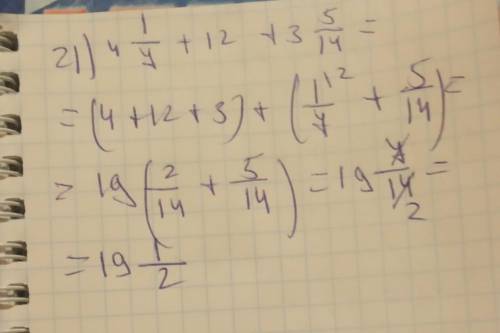 21) 4 1/7 + 12 + 3 5/14 =
= (4 + 12 + 3) + (1/7 ^2 + 5/14) =
= 19 (2/14 + 5/14) = 19 7/14 2 =
= 19 1/2